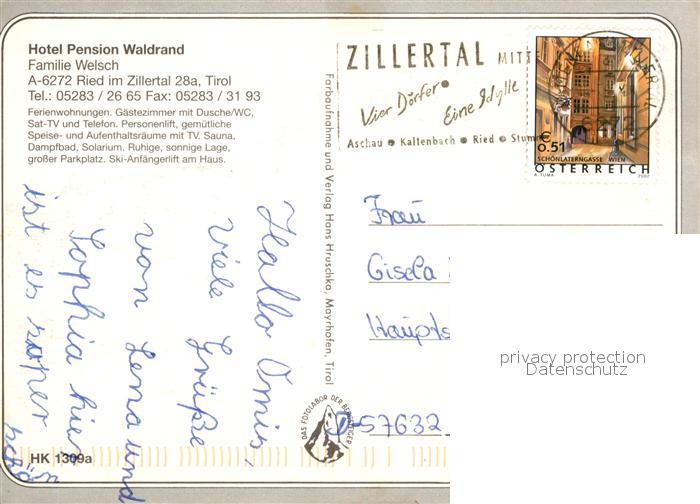 Hotel Pension Waldrand
Familie Welsch
A-6272 Ried im Zillertal 28a, Tirol
Tel.: 05283 / 26 65 Fax: 05283 / 31 93
Ferienwohnungen. Gästezimmer mit Dusche/WC,
Sat-TV und Telefon. Personenlift, gemütliche
Speise- und Aufenthaltsräume mit TV. Sauna,
Dampfbad, Solarium. Ruhige, sonnige Lage,
großer Parkplatz. Ski-Anfängerlift am Haus.
Hallo Omis,
viele Grüße
von Lena und
Sophia hier
ist es super
schön
HK 1309a
Farbaufnahme und Verlag Hans Hruschka, Mayrhofen, Tirol
DAS FOTOLABOR DER BERGSTEIGER
ZILLERTAL MITTE
Vier Dörfer
Eine Idylle
Aschau Kaltenbach Ried Stumm
€ 0.51
SCHÖNLATERNGASSE WIEN
ÖSTERREICH
A. TUMA 2002
Frau
Gisela
Haupts
D-57632
privacy protection
Datenschutz